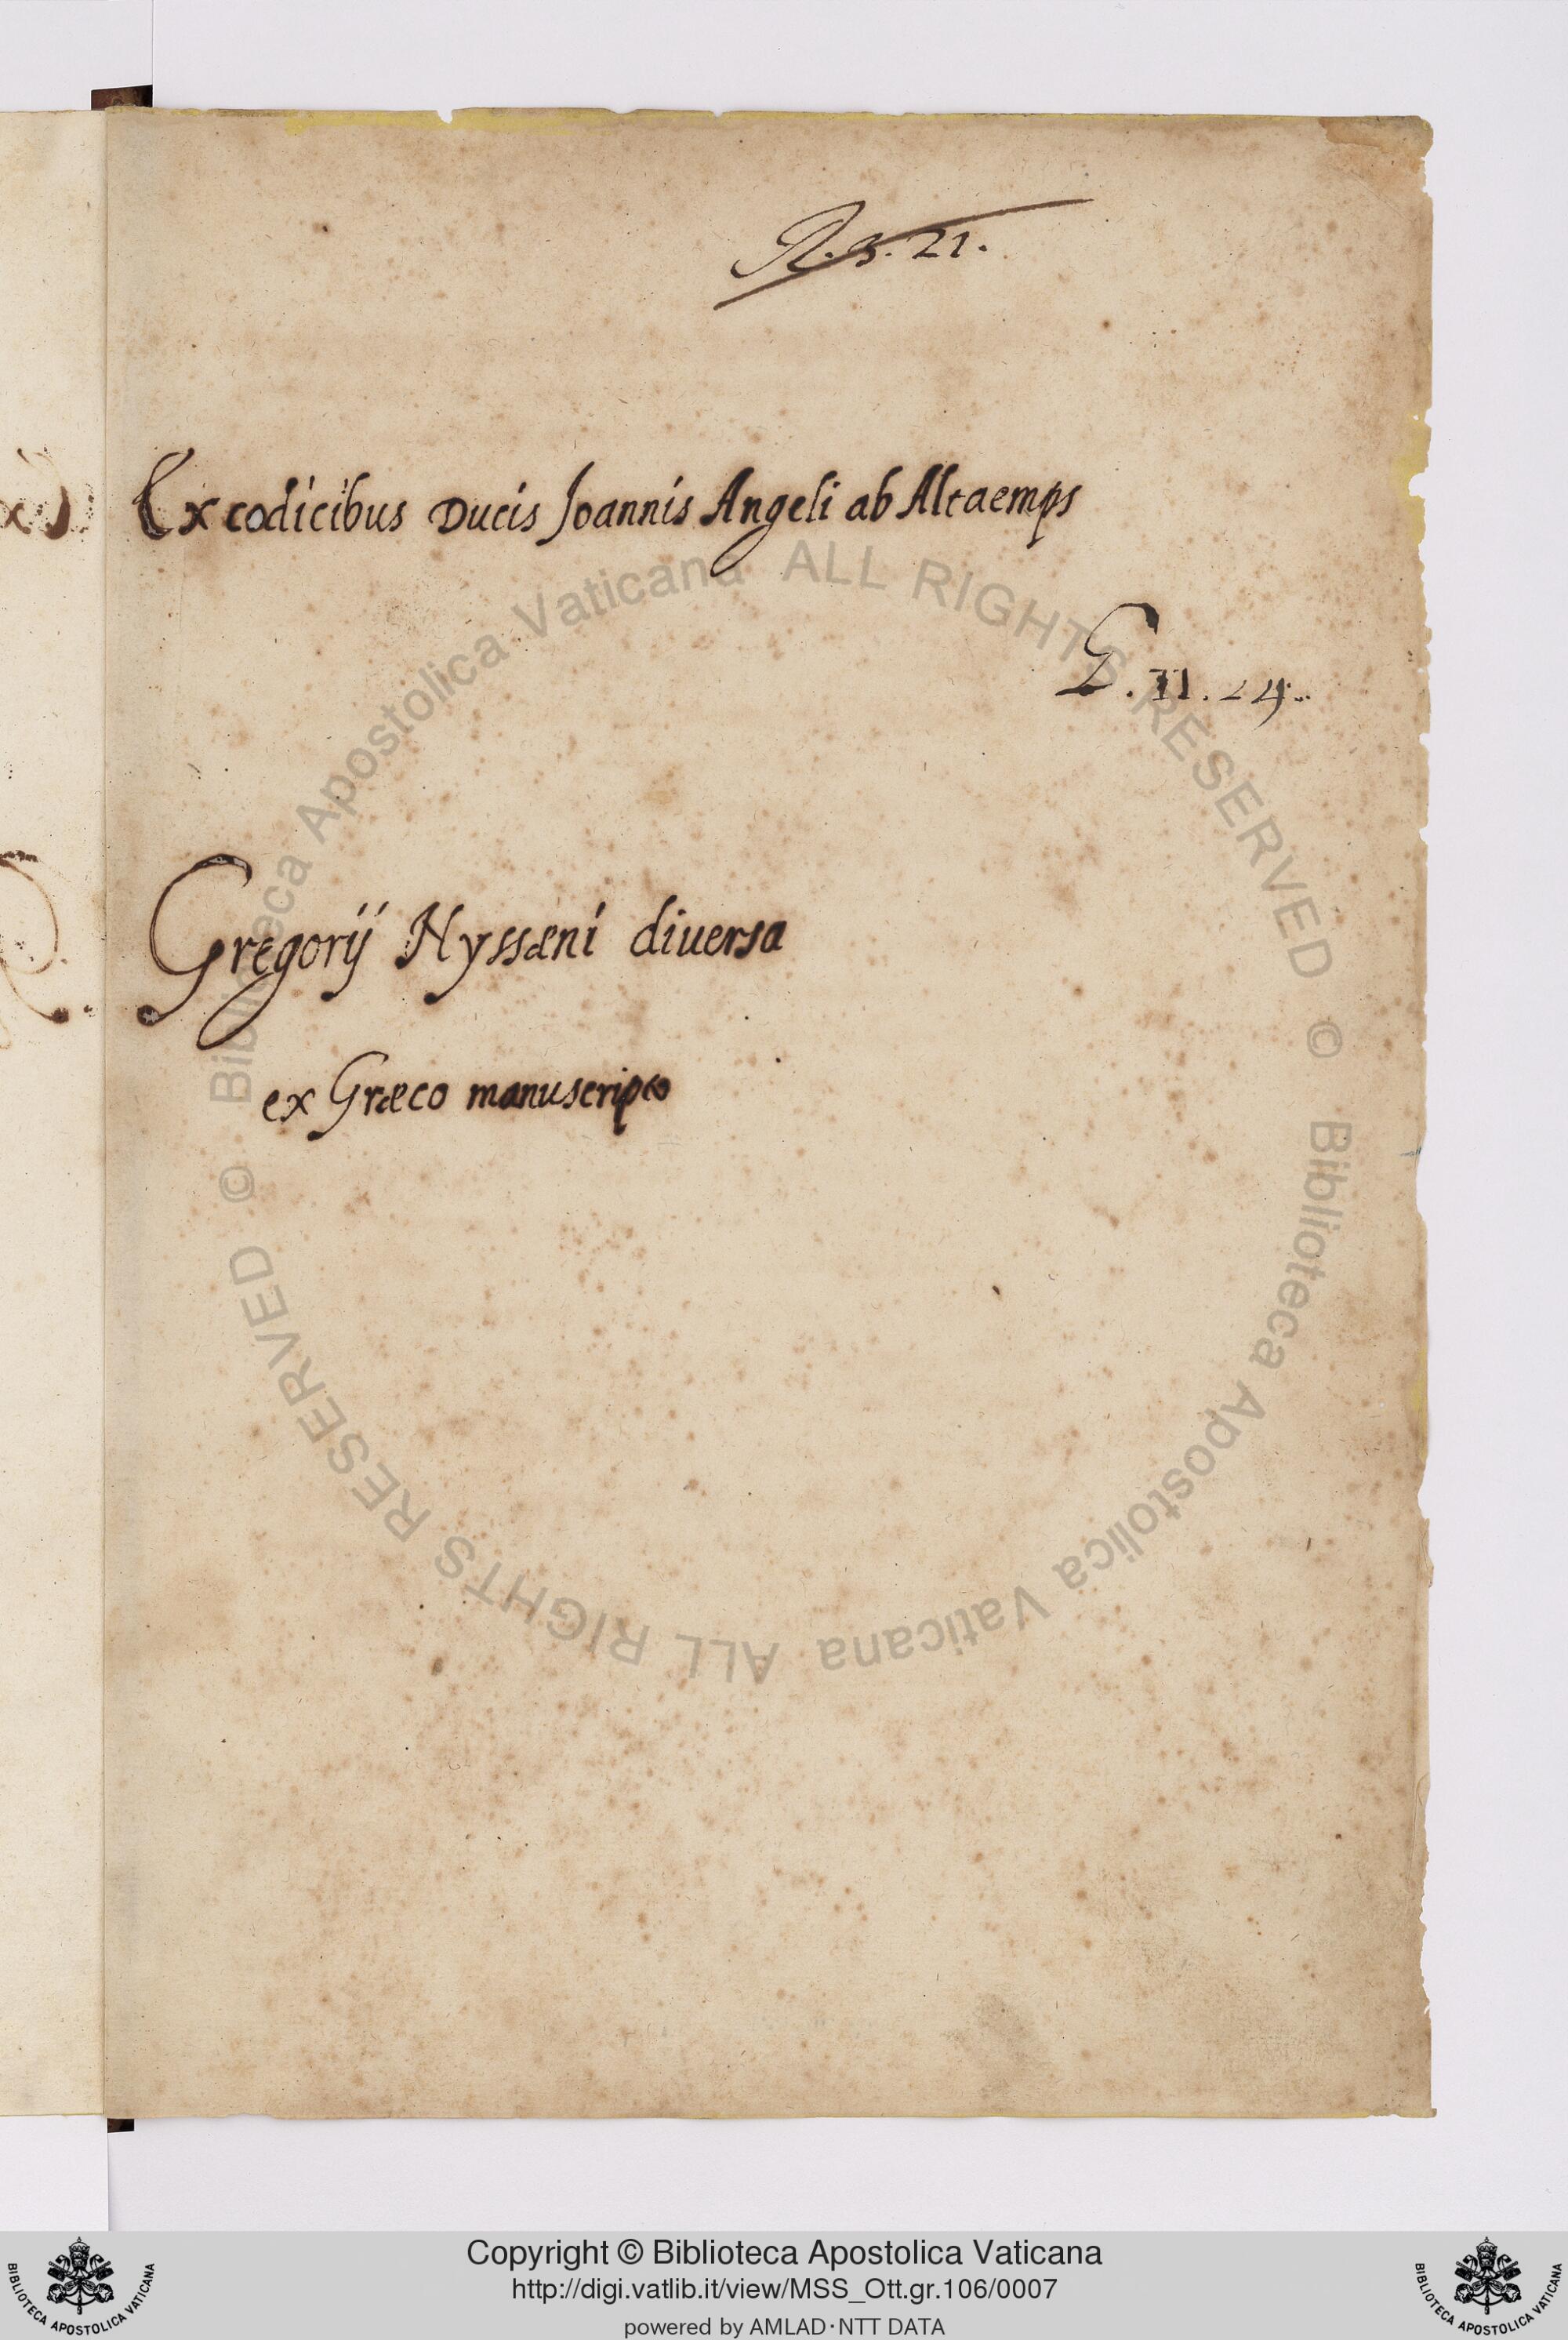 R.3.21.
Ex codicibus Ducis Joannis Angeli ab Altaemps
G.II.24.
Gregorij Nyssæni diuersa
ex Græco manuscripto
© Biblioteca Apostolica Vaticana ALL RIGHTS RESERVED
© Biblioteca Apostolica Vaticana ALL RIGHTS RESERVED
Copyright © Biblioteca Apostolica Vaticana
http://digi.vatlib.it/view/MSS_Ott.gr.106/0007
powered by AMLAD·NTT DATA
BIBLIOTECA APOSTOLICA VATICANA
BIBLIOTECA APOSTOLICA VATICANA